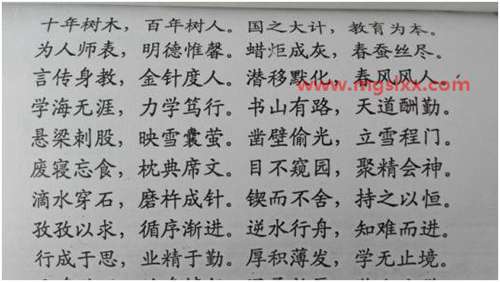 十年树木，百年树人。国之大计，教育为本。
为人师表，明德惟馨。蜡炬成灰，春蚕丝尽。
言传身教，金针度人。潜移默化，春风风人。
www.mgslxx.com
学海无涯，力学笃行。书山有路，天道酬勤。
悬梁刺股，映雪囊萤。凿壁偷光，立雪程门。
废寝忘食，枕典席文。目不窥园，聚精会神。
滴水穿石，磨杵成针。锲而不舍，持之以恒。
孜孜以求，循序渐进。逆水行舟，知难而进。
行成于思，业精于勤。厚积薄发，学无止境。